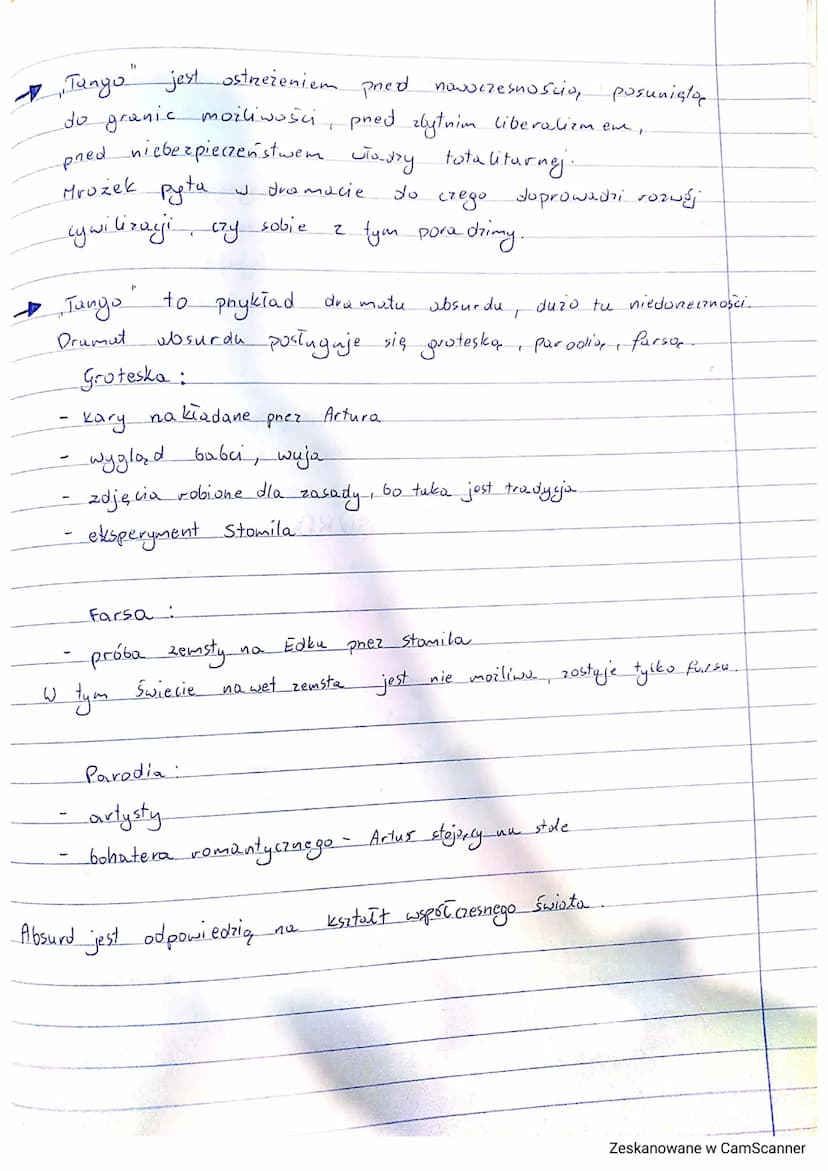 → „Tango" jest ostrzeżeniem przed nowoczesnością posuniętą
do granic możliwości, przed zbytnim liberalizmem,
przed niebezpieczeństwem władzy totalitarnej.
Mrożek pyta w dramacie do czego doprowadzi rozwój
cywilizacji, czy sobie z tym poradzimy.
→ „Tango" to przykład dramatu absurdu, dużo tu niedorzeczności.
Dramat absurdu posługuje się groteską, parodią, farsą.
Groteska:
- kary nakładane przez Artura
- wygląd babci, wuja
- zdjęcia robione dla zasady, bo taka jest tradycja
- eksperyment Stomila
Farsa:
- próba zemsty na Edku przez Stomila
W tym świecie nawet zemsta jest nie możliwa, zostaje tylko farsa.
Parodia:
- artysty
- bohatera romantycznego - Artur stojący na stole
Absurd jest odpowiedzią na kształt współczesnego świata.
Zeskanowane w CamScanner